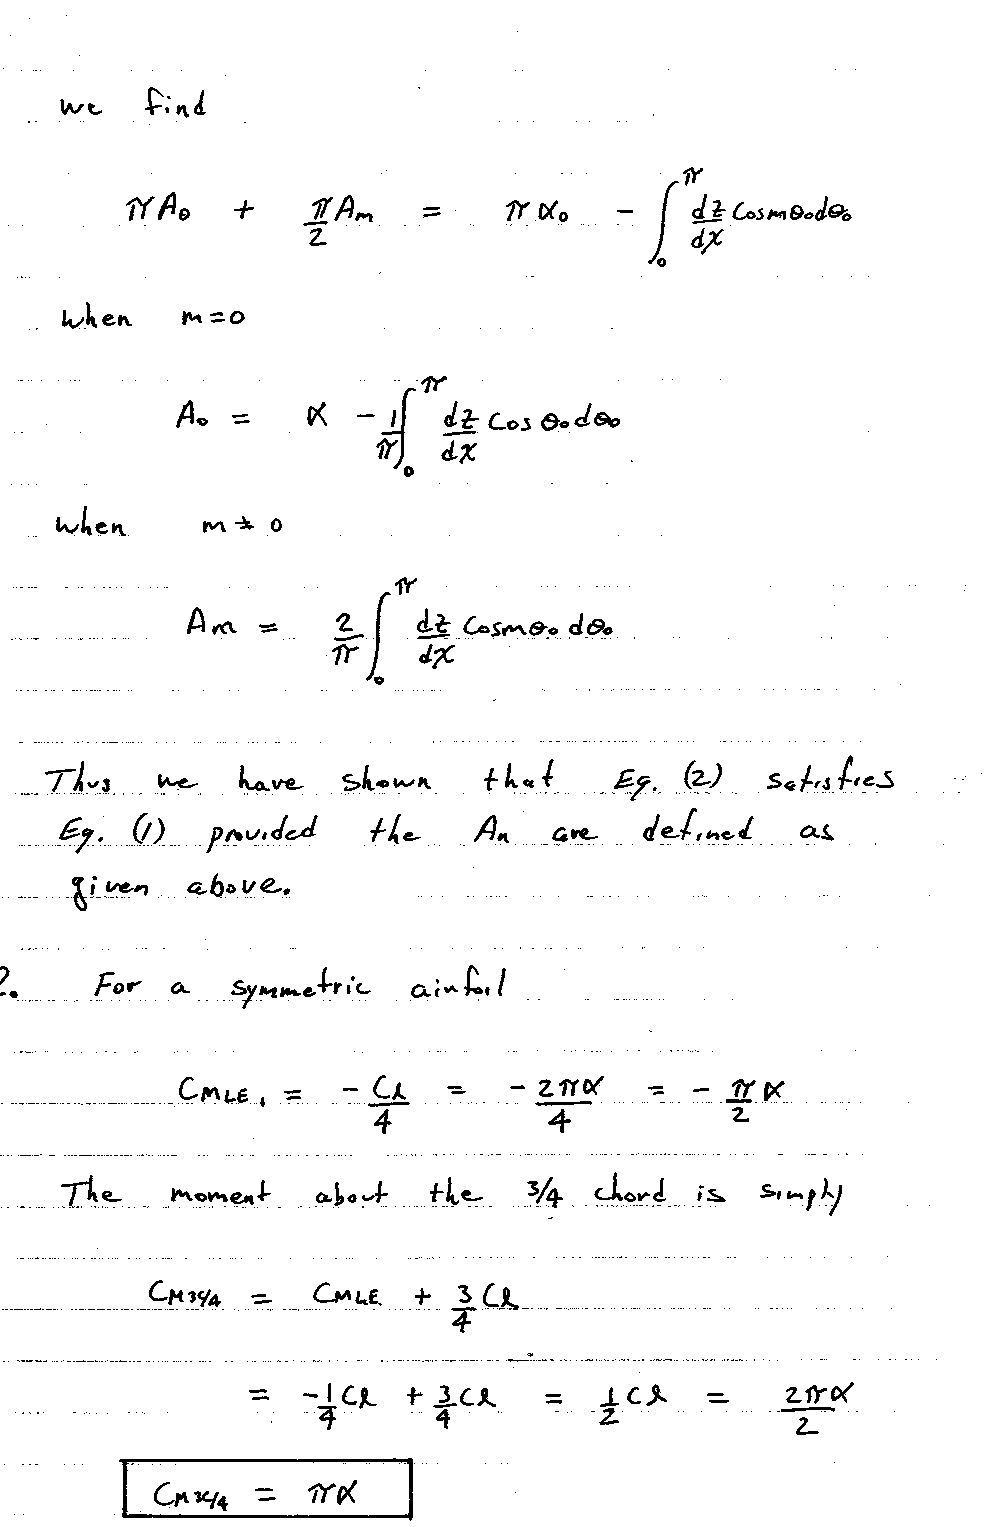 we find
πA₀ + π/2 Am = πα₀ - ∫₀^π dz/dx Cosmθ₀dθ₀
When m=0
A₀ = α - 1/π ∫₀^π dz/dx Cos θ₀dθ₀
When m≠0
Am = 2/π ∫₀^π dz/dx Cosmθ₀ dθ₀
Thus we have shown that Eq. (2) satisfies
Eq. (1) provided the An are defined as
given above.
2. For a symmetric airfoil
CMLE, = - Cl/4 = - 2πα/4 = - π/2 α
The moment about the 3/4 chord is simply
CM3c/4 = CMLE + 3/4 Cl
= -1/4 Cl + 3/4 Cl = 1/2 Cl = 2πα/2
CM3c/4 = πα